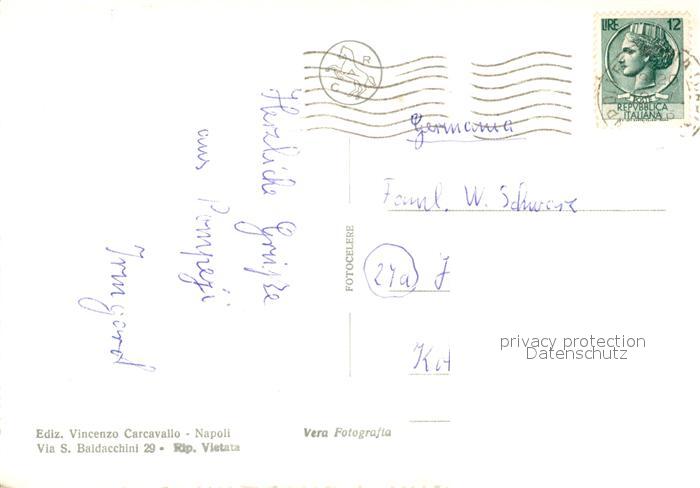 LIRE 12
POSTE
REPVBBLICA
ITALIANA
Germania
Faml. W. Schwarz
24a J
KA
Herzliche Grüße
aus Pompeji
Irmgard
FOTOCELERE
privacy protection
Datenschutz
Ediz. Vincenzo Carcavallo - Napoli
Via S. Baldacchini 29 - Rip. Vietata
Vera Fotografia